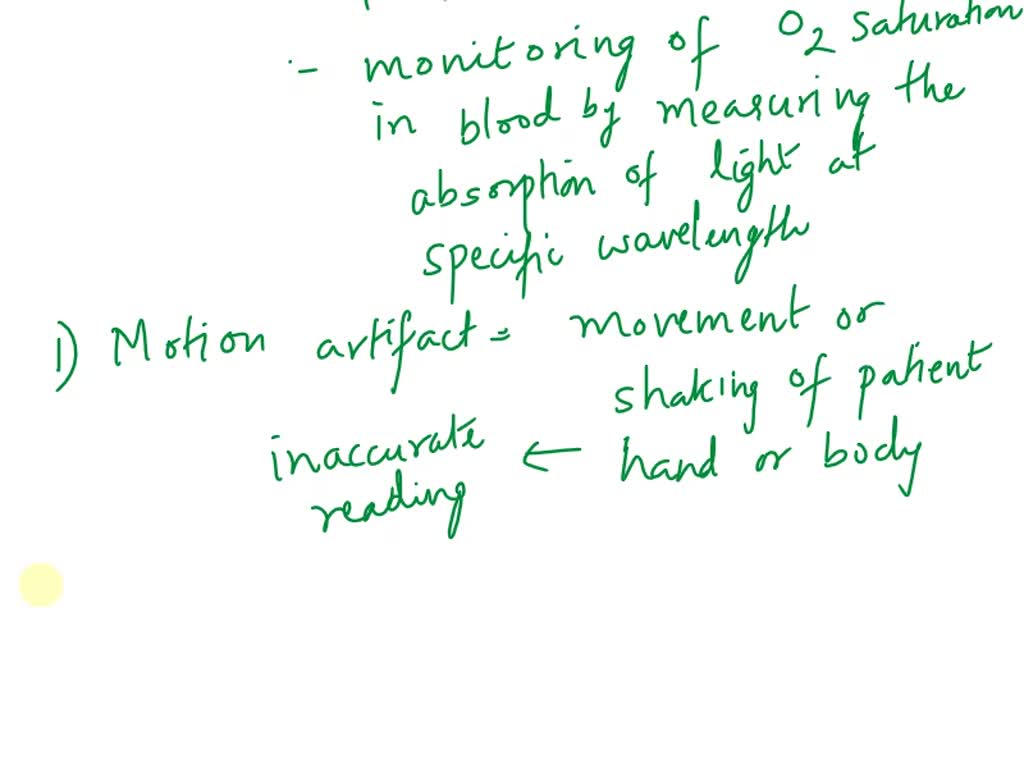 - monitoring of O2 saturation
in blood by measuring the
absorption of light at
specific wavelength
1) Motion artifact = movement or
shaking of patient
inaccurate ← hand or body
reading